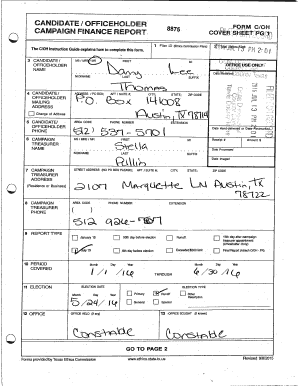 CANDIDATE / OFFICEHOLDER
CAMPAIGN FINANCE REPORT
8875
FORM C/OH
COVER SHEET PG 1
The C/OH Instruction Guide explains how to complete this form.
1 Filer ID (Ethics Commission Filers)
OFFICE USE ONLY
3 CANDIDATE / OFFICEHOLDER NAME
MS / MRS / MR FIRST MI
Danny Lee
NICKNAME LAST SUFFIX
Thomas
4 CANDIDATE / OFFICEHOLDER MAILING ADDRESS
ADDRESS / PO BOX; APT / SUITE #; CITY; STATE; ZIP CODE
P.O. Box 141008
Austin, TX 78714
Change of Address
5 CANDIDATE / OFFICEHOLDER PHONE
AREA CODE PHONE NUMBER EXTENSION
(512)
6 CAMPAIGN TREASURER NAME
MS / MRS / MR FIRST MI
Stella
NICKNAME LAST SUFFIX
Pullin
Receipt # Amount $
Date Processed
Date Imaged
7 CAMPAIGN TREASURER ADDRESS
(Residence or Business)
STREET ADDRESS (NO PO BOX PLEASE); APT / SUITE #; CITY; STATE; ZIP CODE
2107 Marquette LN Austin, TX
78722
8 CAMPAIGN TREASURER PHONE
AREA CODE PHONE NUMBER EXTENSION
512 926-
9 REPORT TYPE
January 15
30th day before election
Runoff
15th day after campaign treasurer appointment (Officeholder Only)
July 15
8th day before election
Exceeded $500 limit
Final Report (Attach C/OH - FR)
10 PERIOD COVERED
Month Day Year
1/1/16
THROUGH
Month Day Year
6/30/16
11 ELECTION
ELECTION DATE
Month Day Year
5/24/16
ELECTION TYPE
Primary
Runoff
Other Description
General
Special
12 OFFICE
OFFICE HELD (if any)
Constable
13 OFFICE SOUGHT (if known)
Constable
GO TO PAGE 2
Forms provided by Texas Ethics Commission
www.ethics.state.tx.us